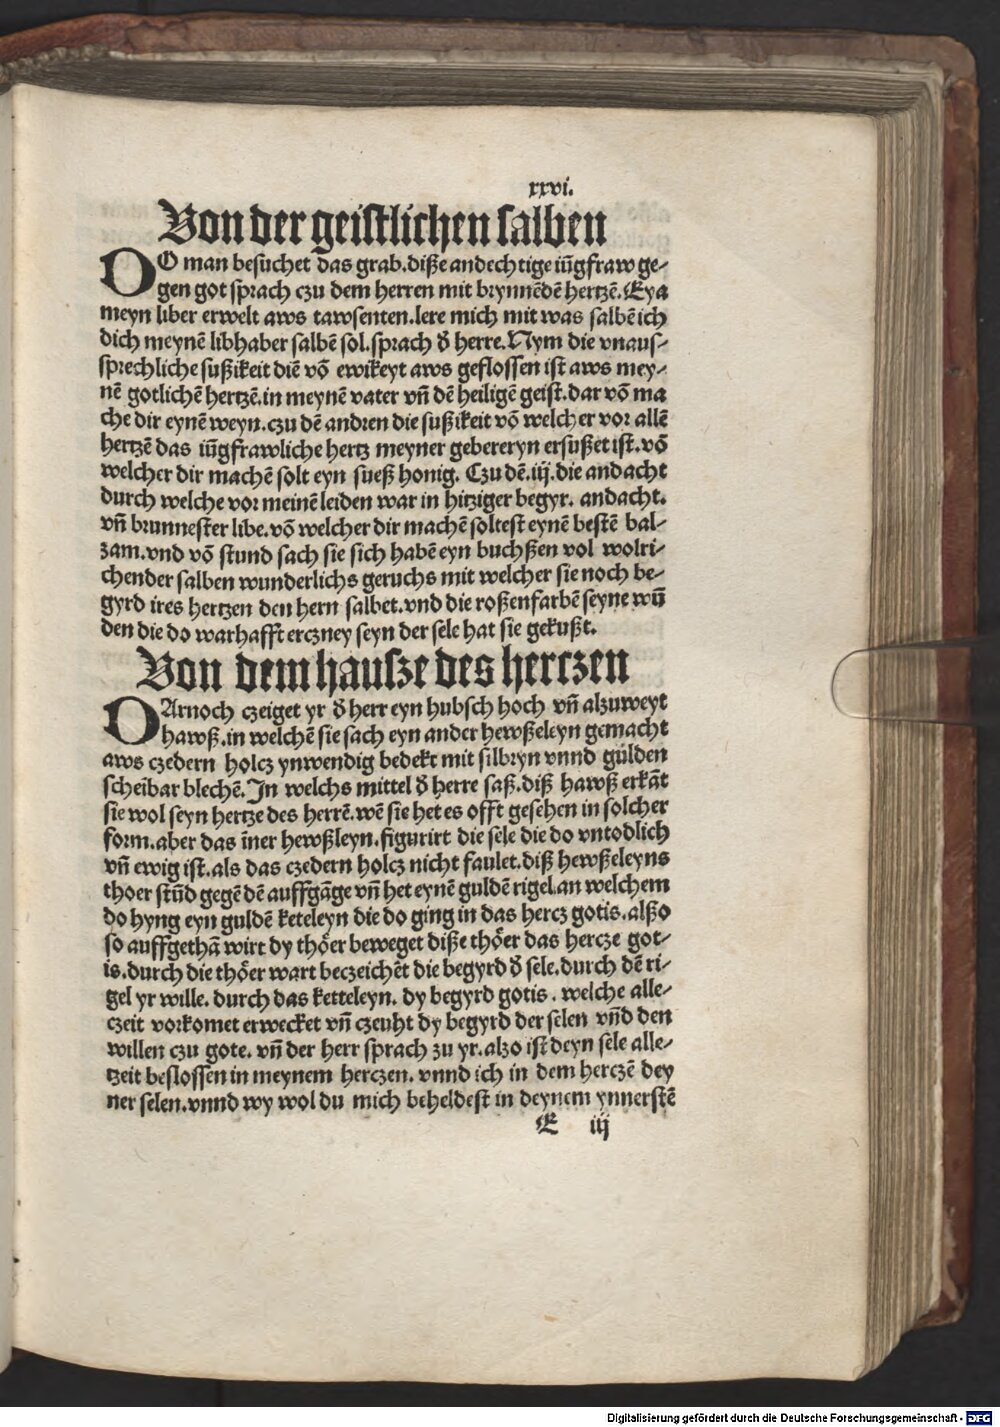 xxvi.
Von der geistlichen salben
DO man besuchet das grab. diße andechtige iũgfraw ge⸗
gen got sprach czu dem herren mit brynnẽdẽ hertzẽ. Eya
meyn liber erwelt aws tawsenten. lere mich mit was salbẽ ich
dich meynẽ libhaber salbẽ sol. sprach d̾ herre. Nym die vnaus⸗
sprechliche sußikeit diẽ võ ewikeyt aws geflossen ist aws mey⸗
nẽ gotlichẽ hertzẽ. in meynẽ vater vñ dẽ heiligẽ geist. dar võ ma
che dir eynẽ weyn. czu dẽ andren die sußikeit võ welcher vor allẽ
hertzẽ das iũgfrawliche hertz meyner gebereryn ersußet ist. võ
welcher dir machẽ solt eyn sueß honig. Czu dẽ. iij. die andacht
durch welche vor meinẽ leiden war in hitziger begyr. andacht.
vñ brunnester libe. võ welcher dir machẽ soltest eynẽ bestẽ bal⸗
zam. vnd võ stund sach sie sich habẽ eyn buchßen vol wolri⸗
chender salben wunderlichs geruchs mit welcher sie noch be⸗
gyrd ires hertzen den hern salbet. vnd die roßenfarbẽ seyne wũ
den die do warhafft erczney seyn der sele hat sie gekußt.
Von dem hausze des herczen
DArnoch czeiget yr d̾ herr eyn hubsch hoch vñ alzuweyt
hawß. in welchẽ sie sach eyn ander hewßeleyn gemacht
aws czedern holcz ynwendig bedekt mit silbryn vnnd gulden
scheibar blechẽ. In welchs mittel d̾ herre saß. diß hawß erkãt
sie wol seyn hertze des herrẽ. wẽ sie het es offt gesehen in solcher
form. aber das ĩner hewßleyn. figurirt die sele die do vntodlich
vñ ewig ist. als das czedern holcz nicht faulet. diß hewßeleyns
thoer stũd gegẽ dẽ auffgãge vñ het eynẽ guldẽ rigel. an welchem
do hyng eyn guldẽ keteleyn die do ging in das hercz gotis. alßo
so auffgethã wirt dy thöer beweget diße thöer das hercze got⸗
is. durch die thöer wart beczeichẽt die begyrd d̾ sele. durch dẽ ri⸗
gel yr wille. durch das ketteleyn. dy begyrd gotis. welche alle⸗
czeit vorkomet erwecket vñ czeuht dy begyrd der selen vñd den
willen czu gote. vñ der herr sprach zu yr. alzo ist deyn sele alle⸗
tzeit beslossen in meynem herczen. vnnd ich in dem herczẽ dey
ner selen. vnnd wy wol du mich beheldest in deynem ynnerstẽ
E iij
Digitalisierung gefördert durch die Deutsche Forschungsgemeinschaft - DFG